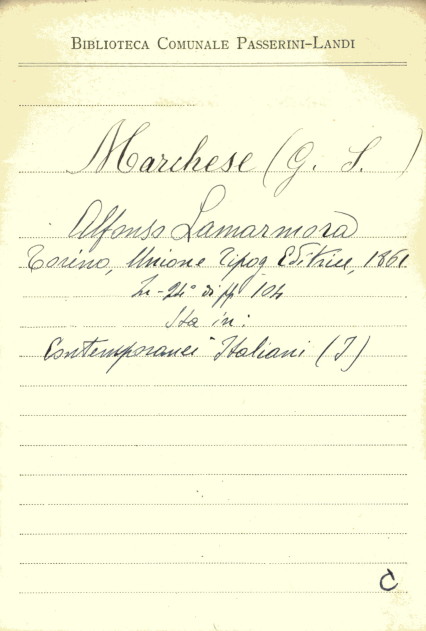 BIBLIOTECA COMUNALE PASSERINI-LANDI
Marchese (G. S.)
Alfonso Lamarmora
Torino, Unione Tipog Editrice, 1861
In-24° di pp 104
Sta in:
Contemporanei Italiani (I)
C